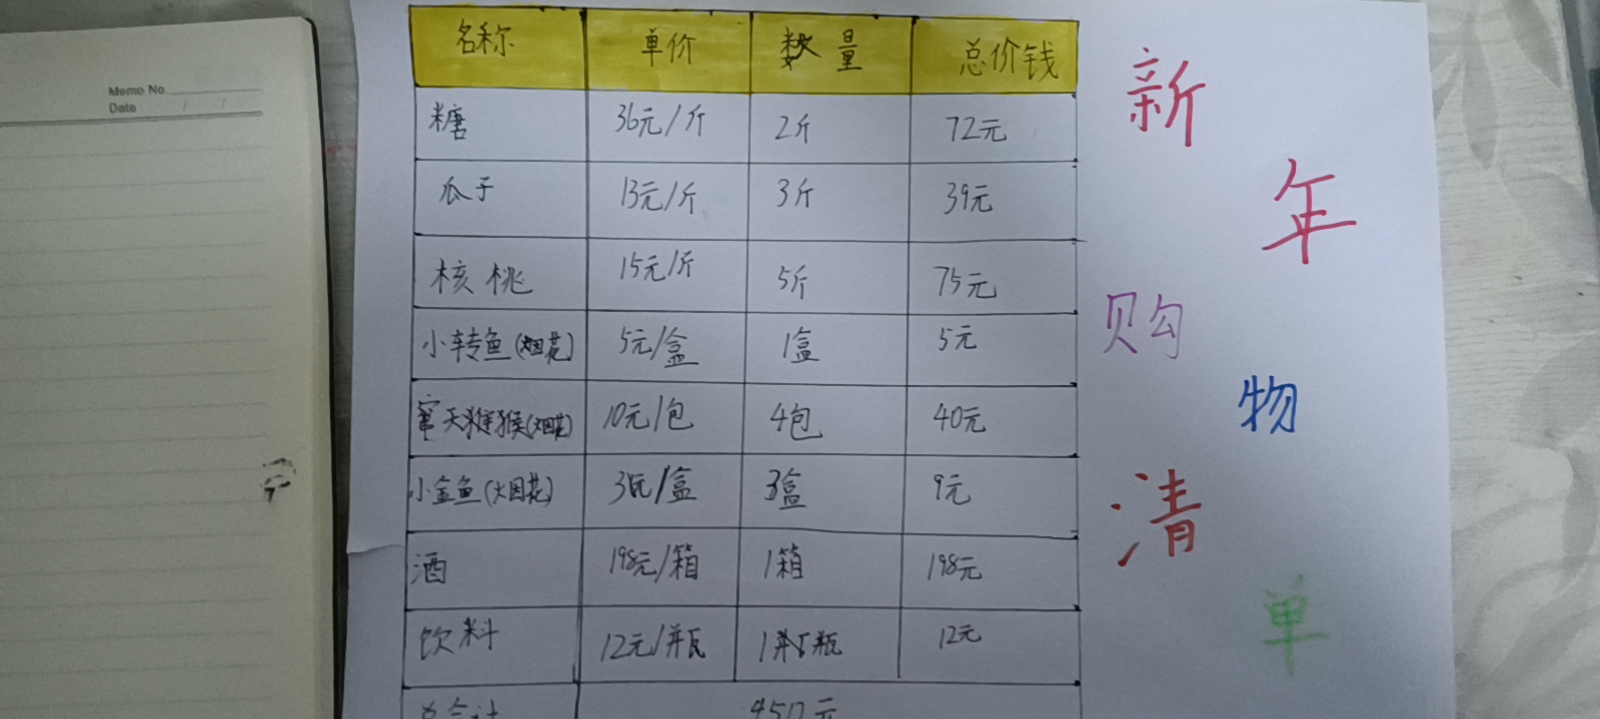 Memo No
Date / /
名称 单价 数量 总价钱
糖 36元/斤 2斤 72元
瓜子 13元/斤 3斤 39元
核桃 15元/斤 5斤 75元
小转鱼(烟花) 5元/盒 1盒 5元
窜天猴(烟花) 10元/包 4包 40元
小金鱼(烟花) 3元/盒 3盒 9元
酒 198元/箱 1箱 198元
饮料 12元/瓶 1瓶 12元
总合计 450元
新
年
购
物
清
单